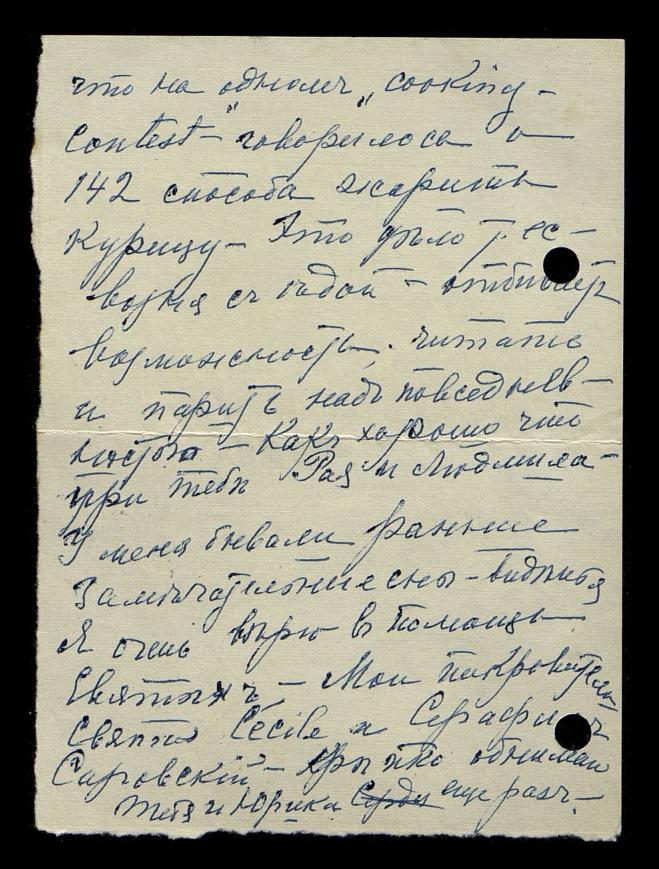 что на одномъ „cooking-
contest-" говорилось о
142 способа жарить
курицу — Это дѣло
возня съ ѣдой — отбиваетъ
возможность читать
и парить надъ повседнев-
ностью — Какъ хорошо что
при тебѣ Рая и Людмила —
У меня бывали раньше
замѣчательные сны —
Я очень вѣрю въ помощь
Святыхъ — Мои покровители
Святые Cécile и Серафимъ
Саровскій — Крѣпко обнимаю
тебя и Юрика еще разъ —